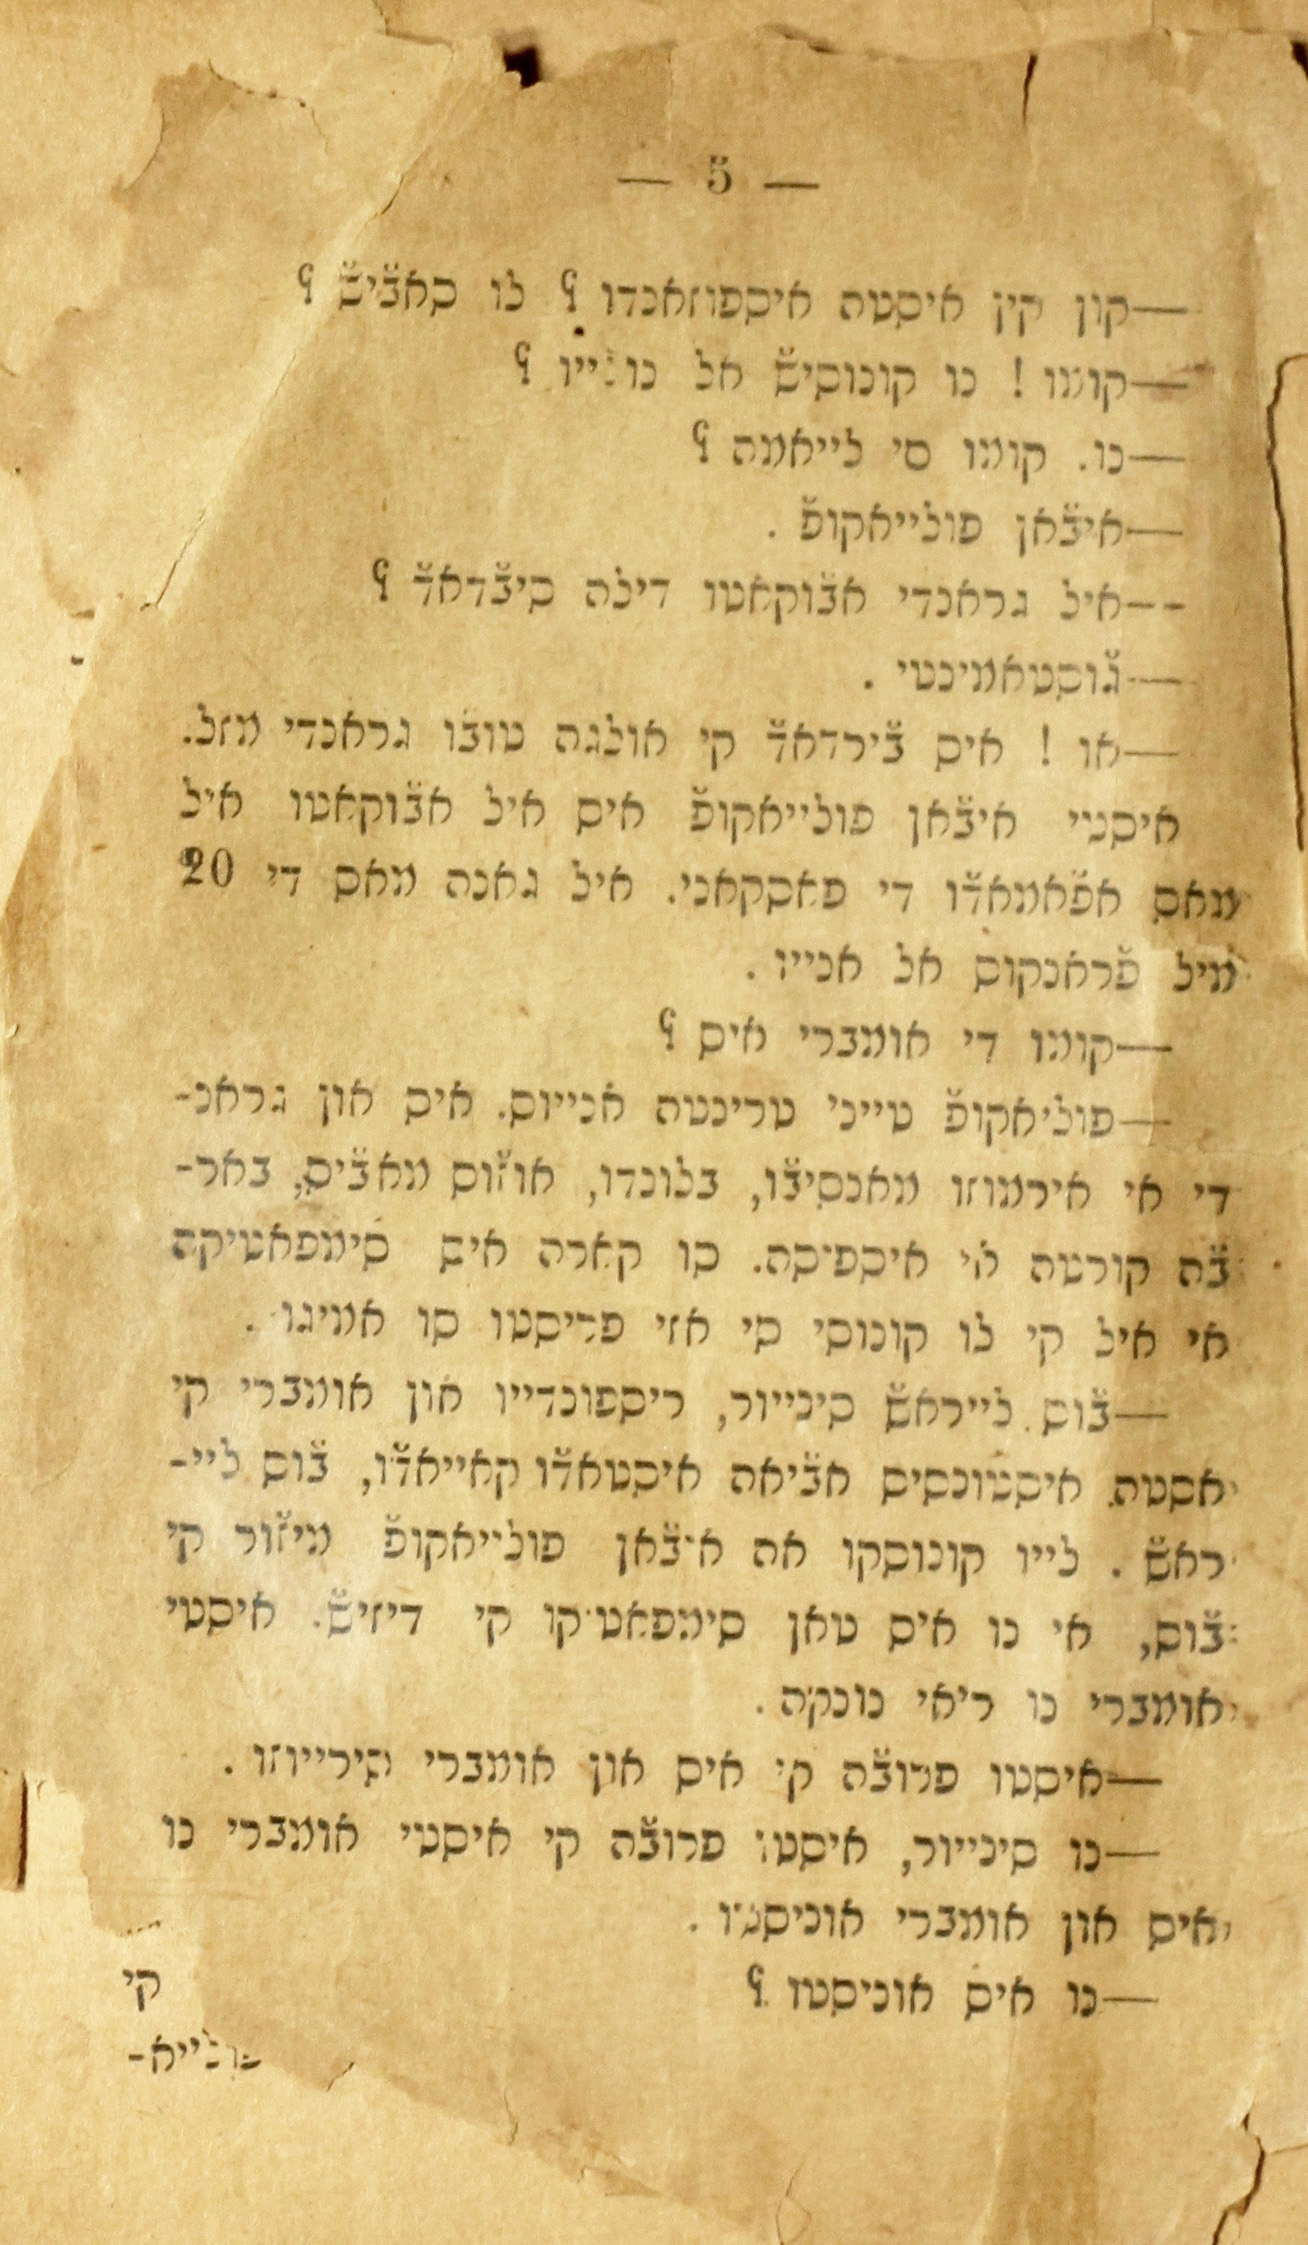 — 5 —
—קון קין איסטה איספוזאנדו ? לו סאב̈יש̈ ?
—קומו ! נו קונוסיש̈ אל נוב̈ייו ?
—נו. קומו סי לייאמה ?
—איב̈אן פולייאקופ̈ .
--איל גראנדי אב̈וקאטו דילה סיב̈דאד̈ ?
—ג̈וסטאמינטי .
—או ! איס ב̈ירדאד̈ קי אולגה טוב̈ו גראנדי מזל.
איסטי איב̈אן פולייאקופ̈ איס איל אב̈וקאטו איל
מאס אפ̈אמאד̈ו די פאסקאני. איל גאנה מאס די 20
מיל פ̈ראנקוס אל אנייו .
—קומו די אומברי איס ?
—פוליאקופ̈ טייני טרינטה אנייוס. איס און גראנ-
די אי אירמוזו מאנסיב̈ו, בלונדו, אוז̈וס מאב̈יס, באר-
ב̈ה קורטה אי איספיסה. סו קארה איס סימפאטיקה
אי איל קי לו קונוסי סי אזי פריסטו סו אמיגו .
—ב̈וס לייראש̈ סינייור, ריספונדייו און אומברי קי
אסטה איסטונסיס אב̈יאה איסטאד̈ו קאייאד̈ו, ב̈וס ליי-
ראש̈ . לייו קונוסקו אה איב̈אן פולייאקופ̈ מיז̈ור קי
ב̈וס, אי נו איס טאן סימפאטיקו קי דיזיש̈. איסטי
אומברי נו ריאי נונקה .
—איסטו פרוב̈ה קי איס און אומברי סירייוזו .
—נו סינייור, איסטו פרוב̈ה קי איסטי אומברי נו
איס און אומברי אוניסטו .
—נו איס אוניסטו ?
קי